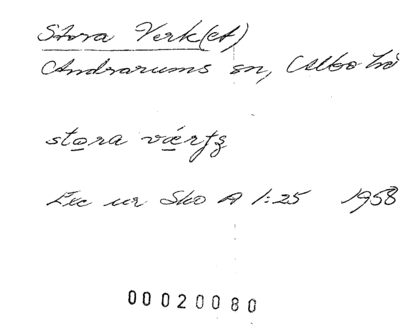 Stora Verk(et)
Andrarums sn, Albo hd
stora värtʒ
Exc ur Sko A 1:25 1958
00020080